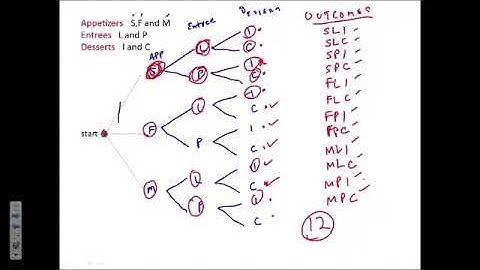 Appetizers S,F and M
Entrees L and P
Desserts I and C
APP
ENTREE
DESSERT
OUTCOMES
start
S
F
M
L
P
L
P
L
P
I
C
I
C
I
C
I
C
I
C
I
C
SLI
SLC
SPI
SPC
FLI
FLC
FPI
FPC
MLI
MLC
MPI
MPC
12